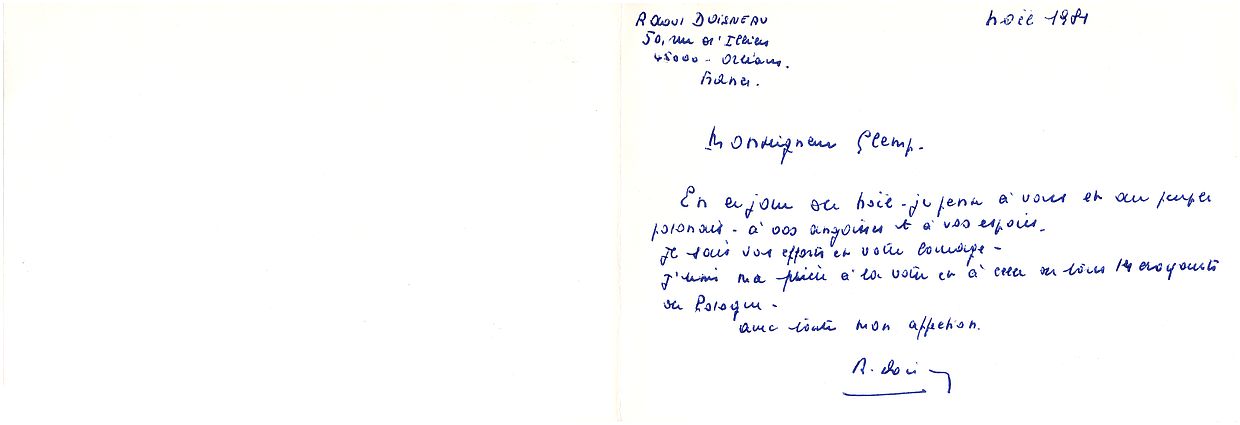 Raoul DOISNEAU Noël 1981
50, rue d'Illiers
45000 - Orléans.
France.
Monseigneur Glemp.
En ce jour de Noël - je pense à vous et au peuple
polonais - à vos angoisses et à vos espoirs.
Je sais vos efforts et votre courage -
J'unis ma prière à la votre et à celle de tous les croyants
de Pologne -
avec toute mon affection.